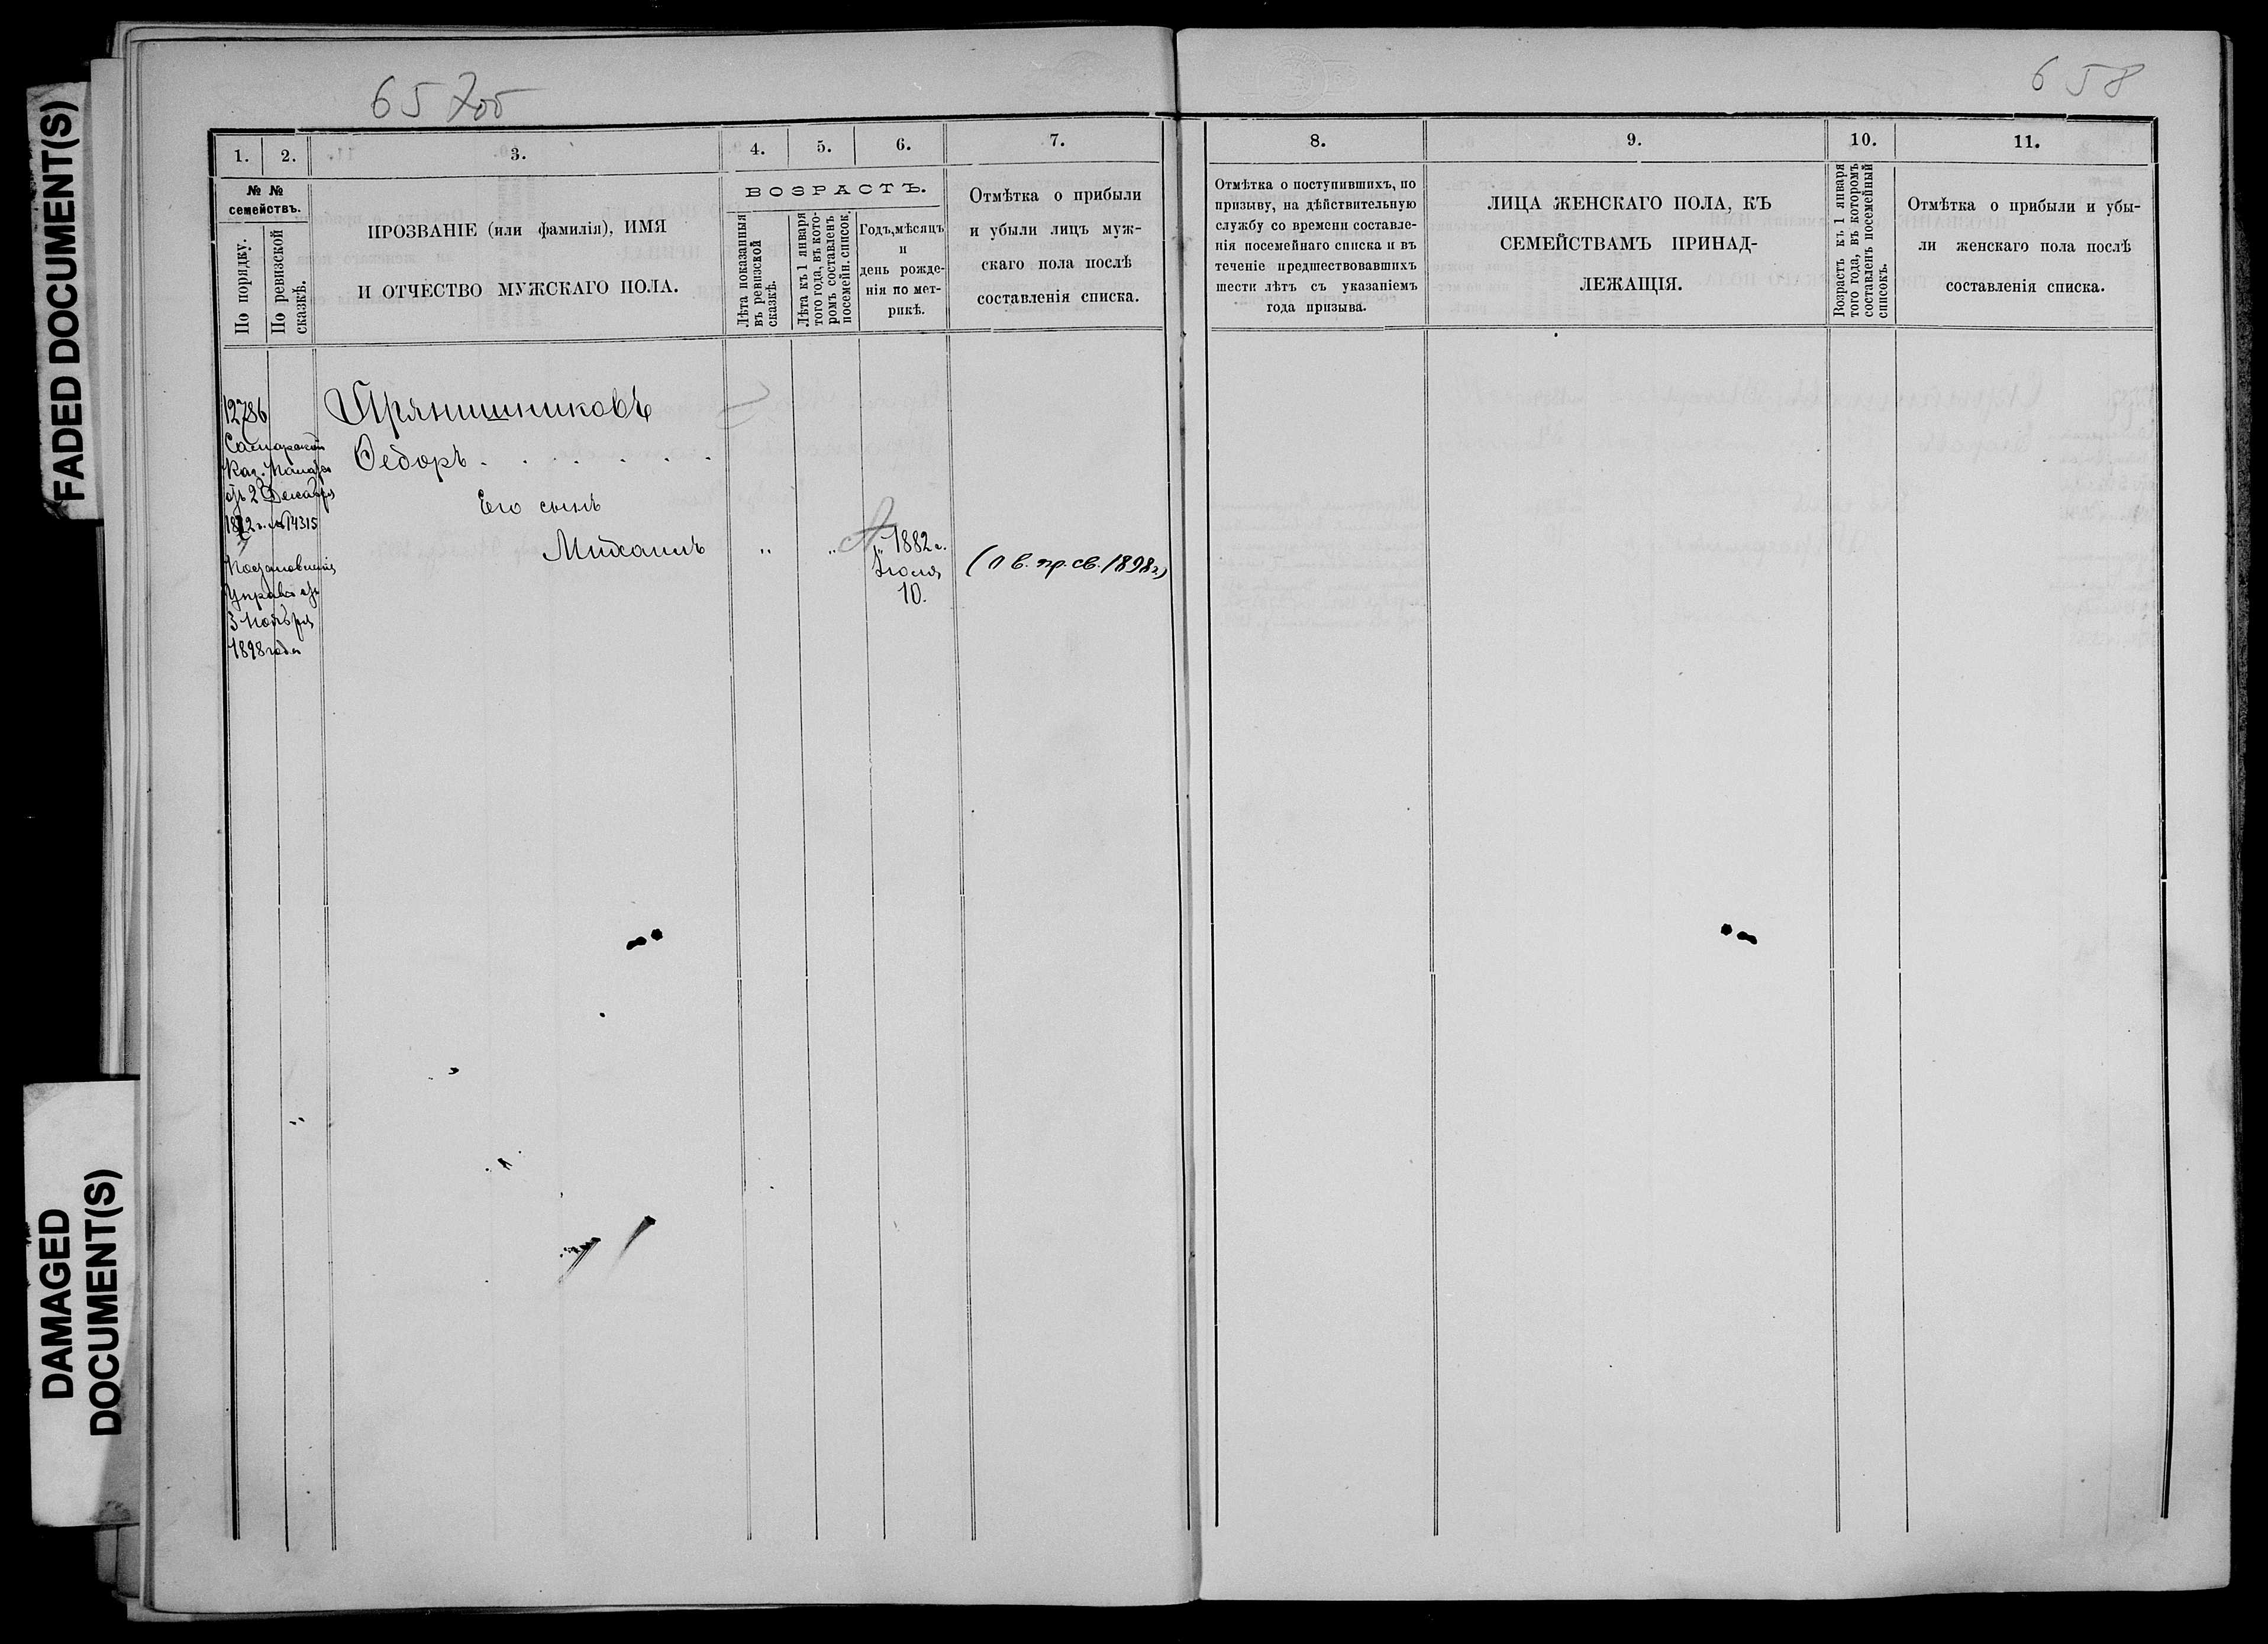 FADED DOCUMENT(S)
DAMAGED
DOCUMENT(S)
657об
658
1.
2.
3.
4.
5.
6.
7.
№ №
семействъ.
По порядку.
По ревизской
сказкѣ.
ПРОЗВАНІЕ (или фамилія), ИМЯ
И ОТЧЕСТВО МУЖСКАГО ПОЛА.
ВОЗРАСТЪ.
Лѣта показанныя
въ ревизской
сказкѣ.
Лѣта къ 1 января
того года, въ кото-
ромъ составленъ
посемейн. списокъ.
Годъ, мѣсяцъ
и
день рожде-
нія по мет-
рикѣ.
Отмѣтка о прибыли
и убыли лицъ муж-
скаго пола послѣ
составленія списка.
8.
9.
10.
11.
Отмѣтка о поступившихъ, по
призыву, на дѣйствительную
службу со времени составле-
нія посемейнаго списка и въ
теченіе предшествовавшихъ
шести лѣтъ съ указаніемъ
года призыва.
ЛИЦА ЖЕНСКАГО ПОЛА, КЪ
СЕМЕЙСТВАМЪ ПРИНАД-
ЛЕЖАЩІЯ.
Возрастъ къ 1 января
того года, въ которомъ
составленъ посемейный
списокъ.
Отмѣтка о прибыли и убы-
ли женскаго пола послѣ
составленія списка.
12786
Самарской
Каз. Палаты
отъ 2 Декабря
г. № 14315
Постановленіе
Управы отъ
3 Ноября
1898 года
Прянишниковъ
Ѳедоръ . . . . . .
Его сынъ
Михаилъ
" " 1882 г.
Іюля
10.
(п в. пр. св. 1898 г.)